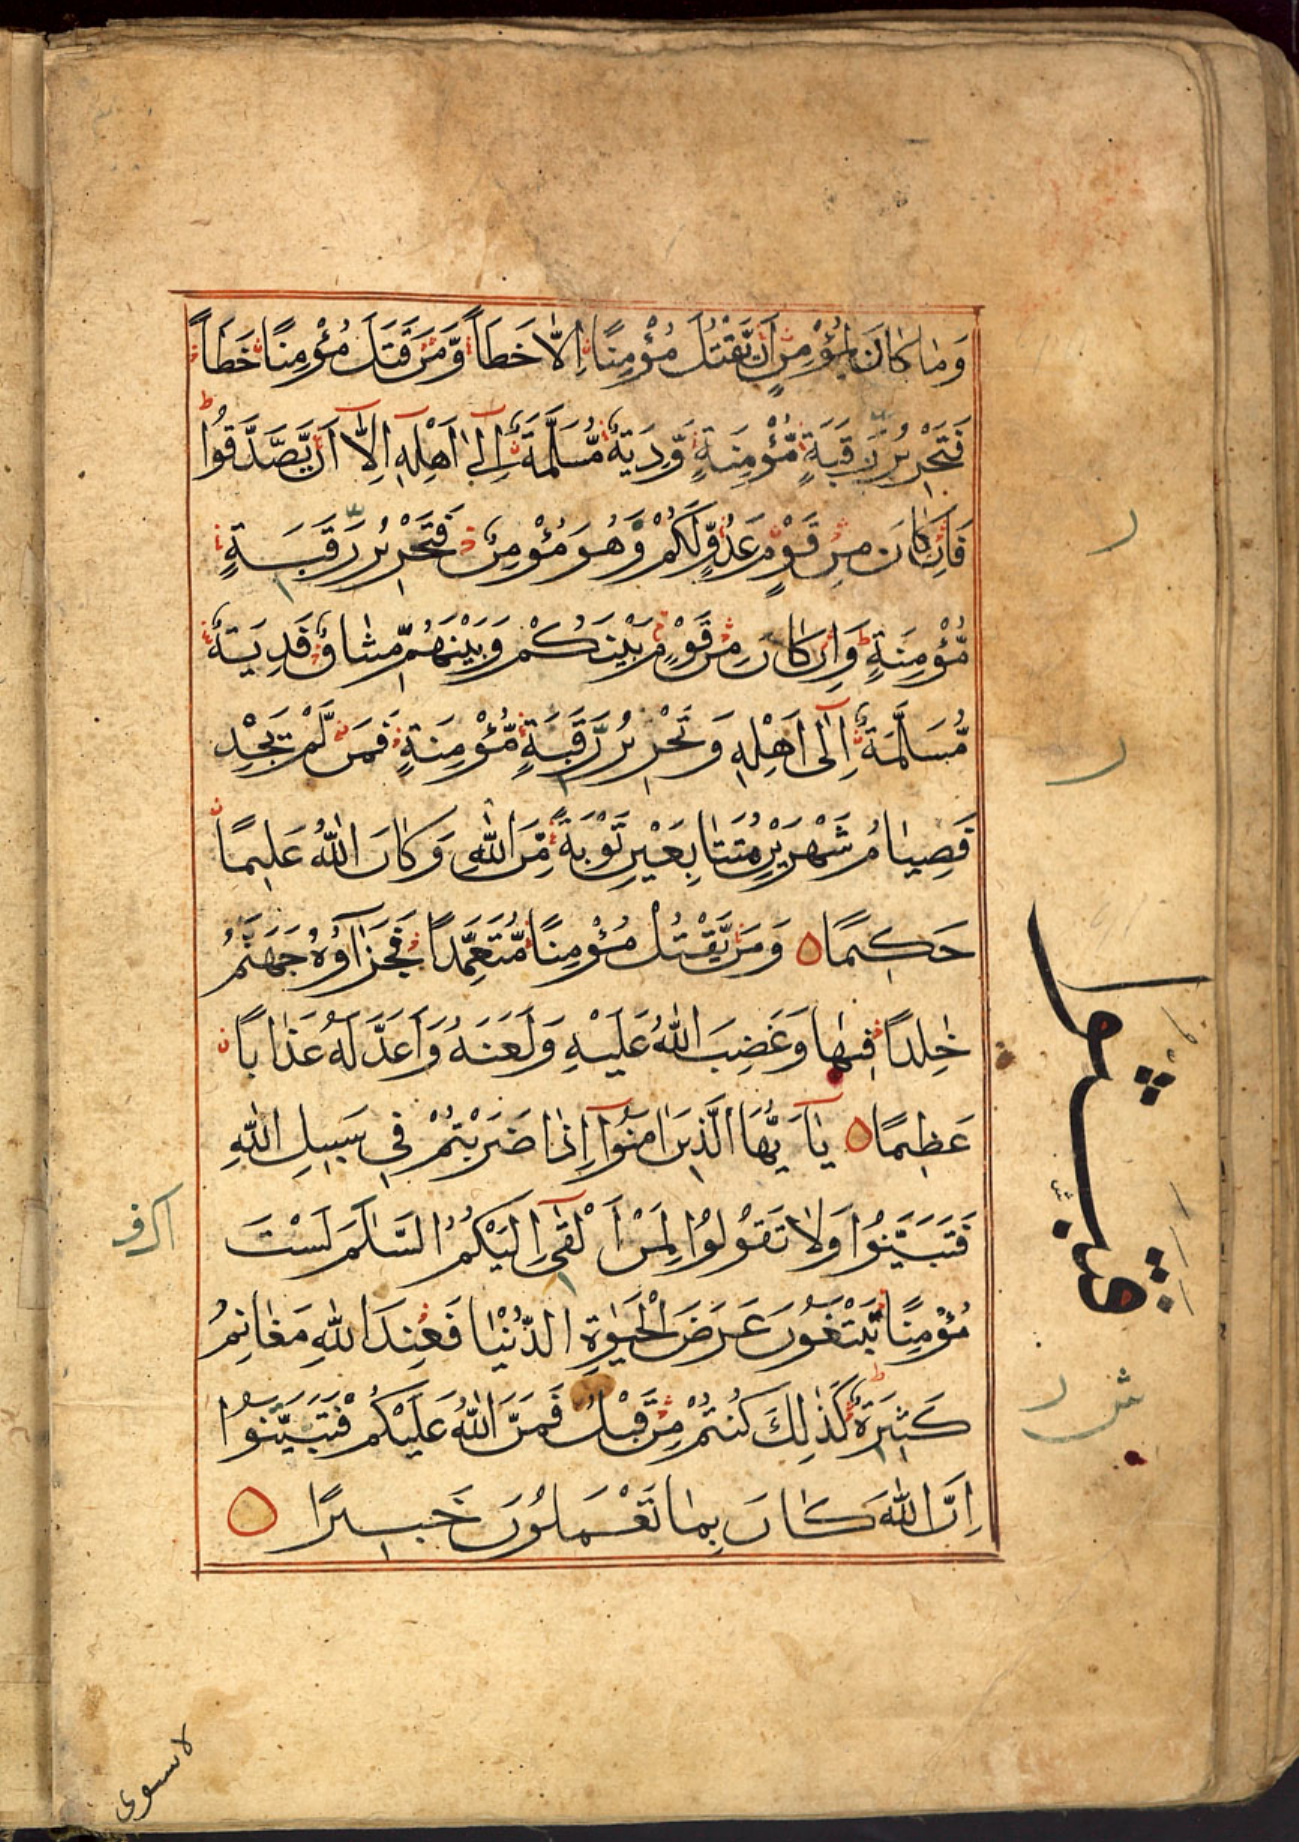 وَمَا كَانَ لِمُؤْمِنٍ اَنْ يَّقْتُلَ مُؤْمِنًا اِلَّا خَطَاً وَّمَنْ قَتَلَ مُؤْمِنًا خَطَاً
فَتَحْرِيْرُ رَّقَبَةٍ مُّؤْمِنَةٍ وَّدِيَةٌ مُّسَلَّمَةٌ اِلٰى اَهْلِهٖ اِلَّآ اَنْ يَّصَّدَّقُوْا
فَاِنْ كَانَ مِنْ قَوْمٍ عَدُوٍّ لَّكُمْ وَهُوَ مُؤْمِنٌ فَتَحْرِيْرُ رَقَبَةٍ
مُّؤْمِنَةٍ وَاِنْ كَانَ مِنْ قَوْمٍ بَيْنَكُمْ وَبَيْنَهُمْ مِّيْثَاقٌ فَدِيَةٌ
مُّسَلَّمَةٌ اِلٰٓى اَهْلِهٖ وَتَحْرِيْرُ رَقَبَةٍ مُّؤْمِنَةٍ فَمَنْ لَّمْ يَجِدْ
فَصِيَامُ شَهْرَيْنِ مُتَتَابِعَيْنِ تَوْبَةً مِّنَ اللّٰهِ وَكَانَ اللّٰهُ عَلِيمًا
حَكِيمًا وَمَنْ يَّقْتُلْ مُؤْمِنًا مُّتَعَمِّدًا فَجَزَآؤُهٗ جَهَنَّمُ
خٰلِدًا فِيْهَا وَغَضِبَ اللّٰهُ عَلَيْهِ وَلَعَنَهٗ وَاَعَدَّ لَهٗ عَذَابًا
عَظِيمًا يٰٓاَيُّهَا الَّذِيْنَ اٰمَنُوْٓا اِذَا ضَرَبْتُمْ فِيْ سَبِيْلِ اللّٰهِ
فَتَبَيَّنُوْا وَلَا تَقُوْلُوْا لِمَنْ اَلْقٰٓى اِلَيْكُمُ السَّلٰمَ لَسْتَ
مُؤْمِنًا تَبْتَغُوْنَ عَرَضَ الْحَيٰوةِ الدُّنْيَا فَعِنْدَ اللّٰهِ مَغَانِمُ
كَثِيْرَةٌ كَذٰلِكَ كُنْتُمْ مِنْ قَبْلُ فَمَنَّ اللّٰهُ عَلَيْكُمْ فَتَبَيَّنُوْا
اِنَّ اللّٰهَ كَانَ بِمَا تَعْمَلُوْنَ خَبِيْرًا
لا يستوى